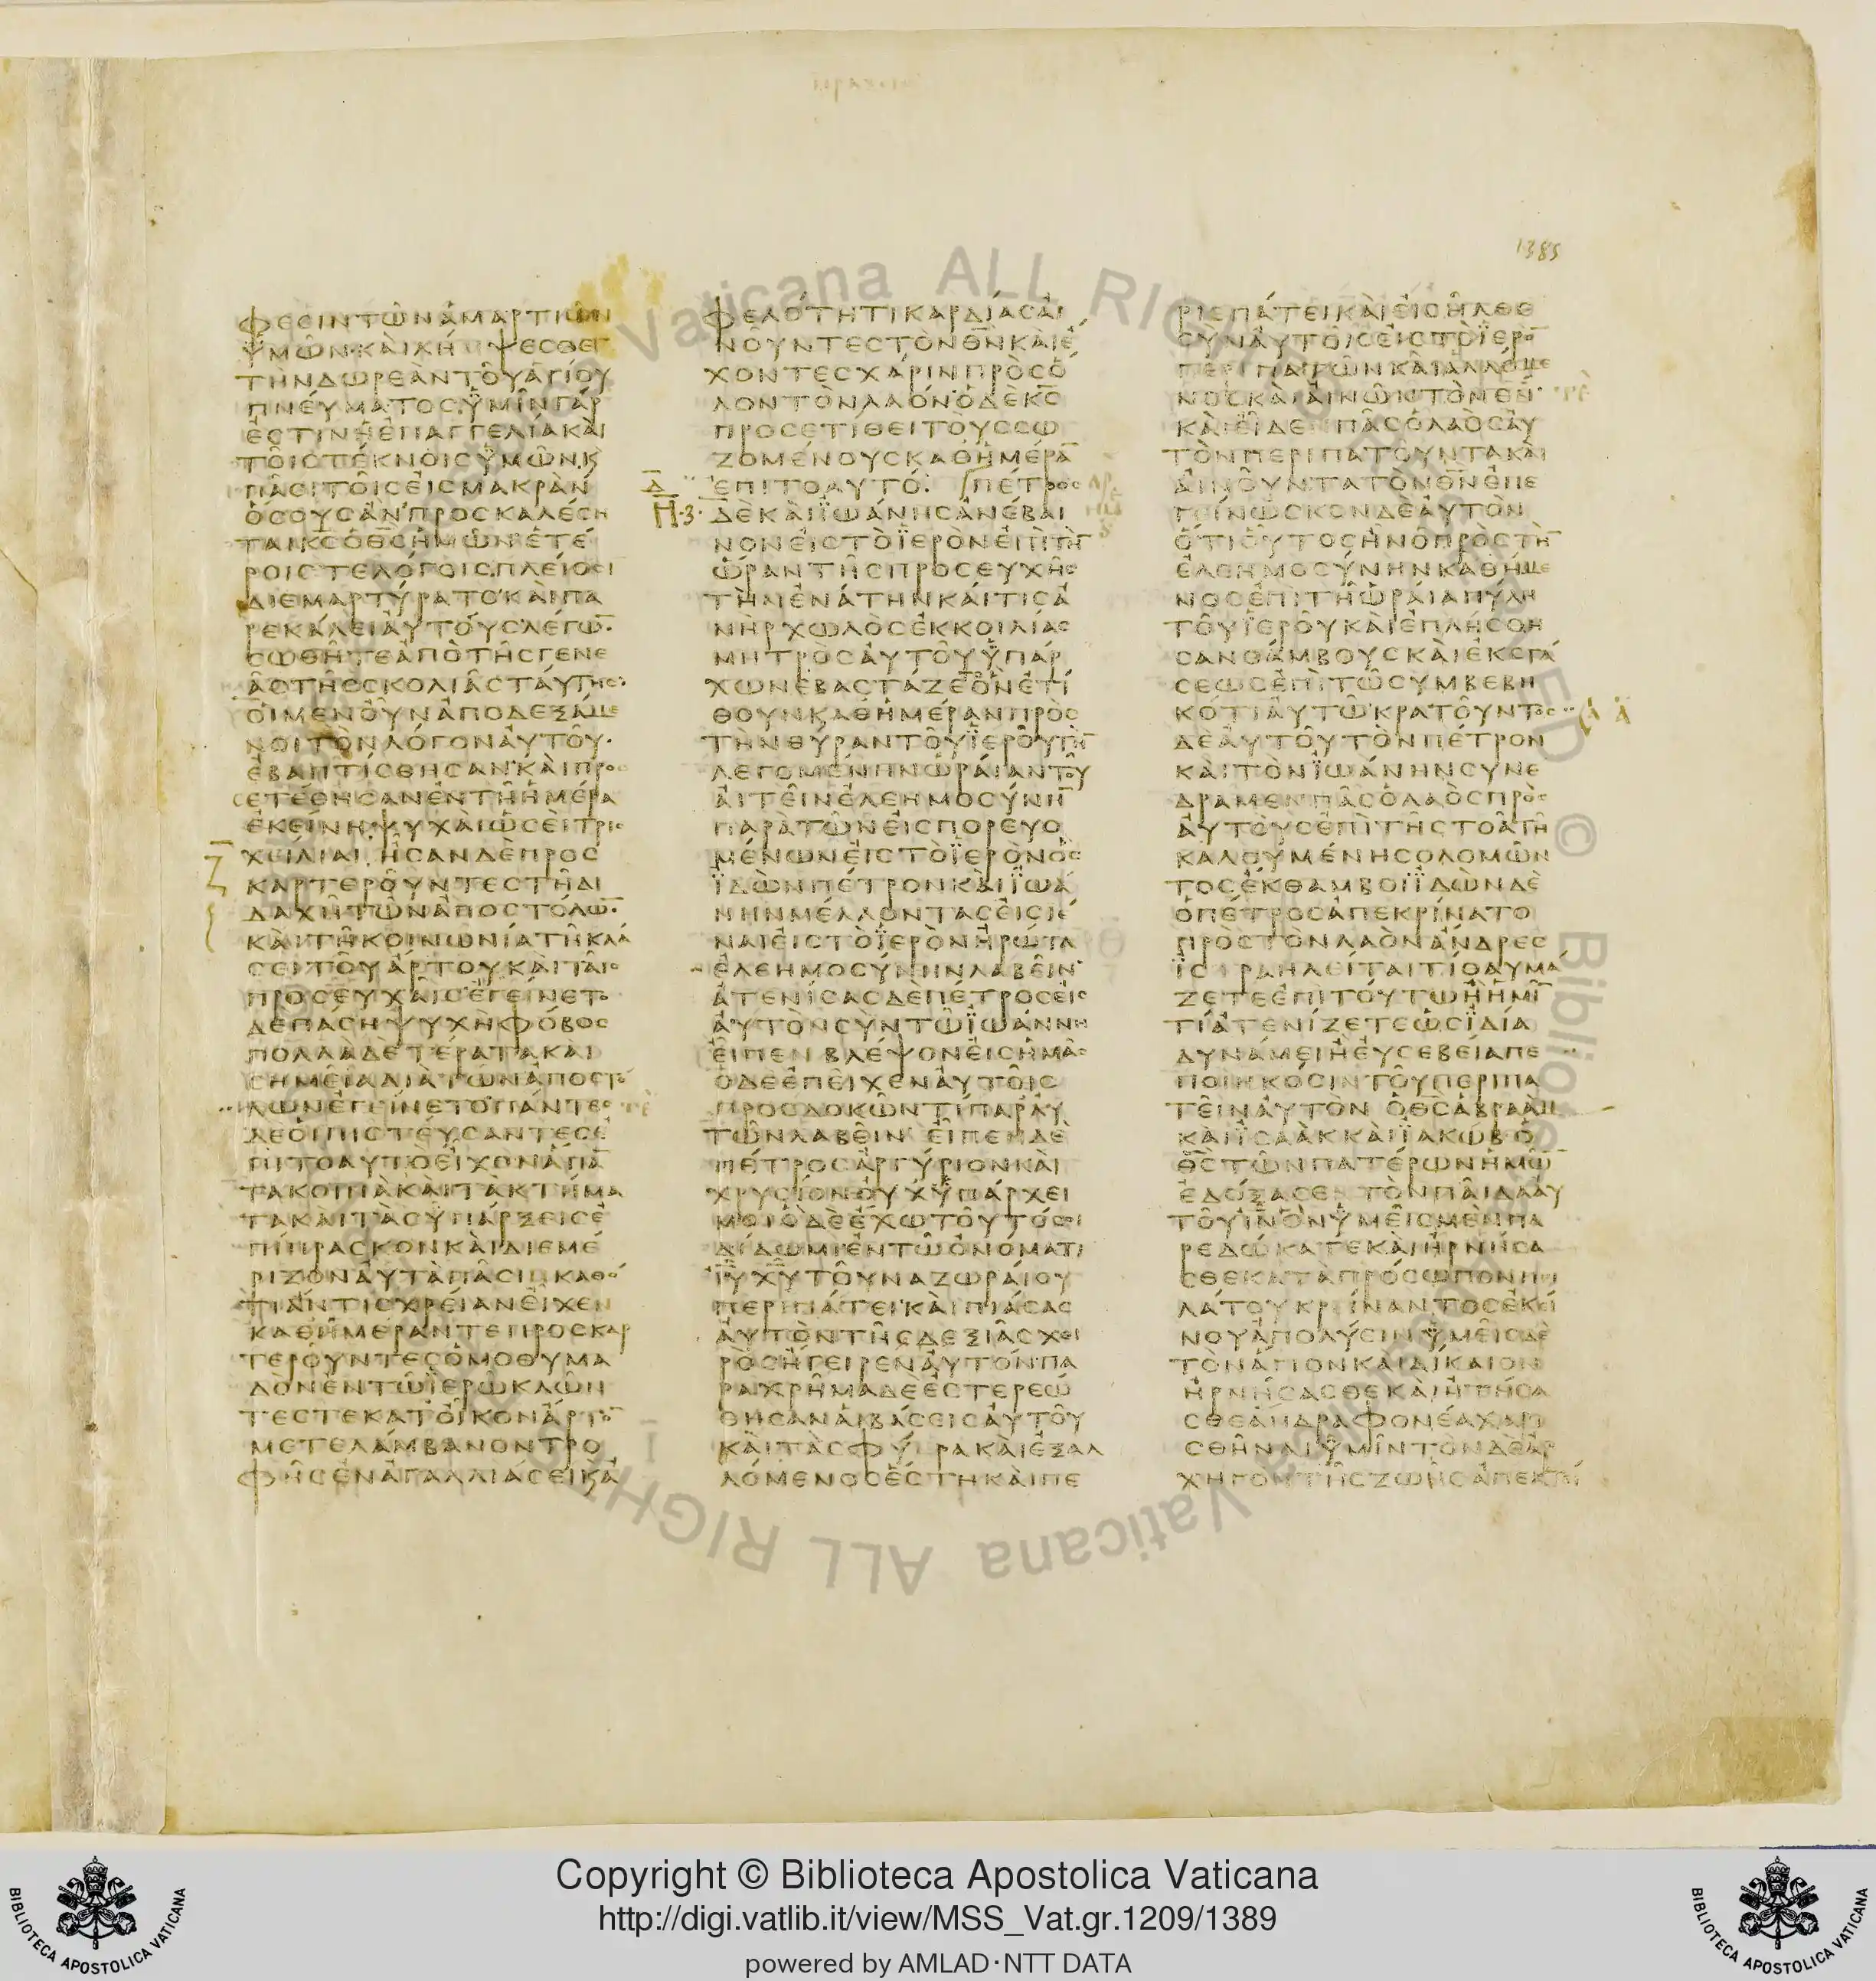 1385
ΦΕCΙΝΤΩΝΑΜΑΡΤΙΩΝ
ΥΜΩΝΚΑΙΛΗΨΕCΘΕ
ΤΗΝΔΩΡΕΑΝΤΟΥΑΓΙΟΥ
ΠΝΕΥΜΑΤΟCΫΜΙΝΓΑΡ
ΕCΤΙΝΗΕΠΑΓΓΕΛΙΑΚΑΙ
ΤΟΙCΤΕΚΝΟΙCΫΜΩΝΚ
ΠΑCΙΤΟΙCΕΙCΜΑΚΡΑΝ
ΟCΟΥCΑΝΠΡΟCΚΑΛΕCΗ
ΤΑΙΚ̅C̅ΟΘ̅C̅ΗΜΩΝΕΤΕ
ΡΟΙCΤΕΛΟΓΟΙCΠΛΕΙΟCΙ
ΔΙΕΜΑΡΤΥΡΑΤΟΚΑΙΠΑ
ΡΕΚΑΛΕΙΑΥΤΟΥCΛΕΓΩ̅
CΩΘΗΤΕΑΠΟΤΗCΓΕΝΕ
ΑCΤΗCCΚΟΛΙΑCΤΑΥΤΗC
ΟΙΜΕΝΟΥΝΑΠΟΔΕΞΑΜΕ
ΝΟΙΤΟΝΛΟΓΟΝΑΥΤΟΥ
ΕΒΑΠΤΙCΘΗCΑΝΚΑΙΠΡΟC
ΕΤΕΘΗCΑΝΕΝΤΗΗΜΕΡΑ
ΕΚΕΙΝΗΨΥΧΑΙΩCΕΙΤΡΙC
Ζ̅ ΧΕΙΛΙΑΙΗCΑΝΔΕΠΡΟC
ΚΑΡΤΕΡΟΥΝΤΕCΤΗΔΙ
ΔΑΧΗΤΩΝΑΠΟCΤΟΛΩ̅
ΚΑΙΤΗΚΟΙΝΩΝΙΑΤΗΚΛΑ
CΕΙΤΟΥΑΡΤΟΥΚΑΙΤΑΙC
ΠΡΟCΕΥΧΑΙCΕΓΕΙΝΕΤΟ
ΔΕΠΑCΗΨΥΧΗΦΟΒΟC
ΠΟΛΛΑΔΕΤΕΡΑΤΑΚΑΙ
CΗΜΕΙΑΔΙΑΤΩΝΑΠΟCΤΟ
ΛΩΝΕΓΕΙΝΕΤΟΠΑΝΤΕC
ΔΕΟΙΠΙCΤΕΥCΑΝΤΕCΕ
ΠΙΤΟΑΥΤΟΕΙΧΟΝΑΠΑ̅
ΤΑΚΟΙΝΑΚΑΙΤΑΚΤΗΜΑ
ΤΑΚΑΙΤΑCΫΠΑΡΞΕΙCΕ
ΠΙΠΡΑCΚΟΝΚΑΙΔΙΕΜΕ
ΡΙΖΟΝΑΥΤΑΠΑCΙΝΚΑΘΟ
ΤΙΑΝΤΙCΧΡΕΙΑΝΕΙΧΕΝ
ΚΑΘΗΜΕΡΑΝΤΕΠΡΟCΚΑΡ
ΤΕΡΟΥΝΤΕCΟΜΟΘΥΜΑ
ΔΟΝΕΝΤΩΪΕΡΩΚΛΩΝ
ΤΕCΤΕΚΑΤΟΙΚΟΝΑΡΤΟ̅
ΜΕΤΕΛΑΜΒΑΝΟΝΤΡΟ
ΦΗCΕΝΑΓΑΛΛΙΑCΕΙΚΑ
ΦΕΛΟΤΗΤΙΚΑΡΔΙΑCΑΙ
ΝΟΥΝΤΕCΤΟΝΘ̅Ν̅ΚΑΙΕ
ΧΟΝΤΕCΧΑΡΙΝΠΡΟCΟ
ΛΟΝΤΟΝΛΑΟΝΟΔΕΚ̅C̅
ΠΡΟCΕΤΙΘΕΙΤΟΥCCΩ
ΖΟΜΕΝΟΥCΚΑΘΗΜΕΡΑ̅
Δ̅ ΕΠΙΤΟΑΥΤΟ ΠΕΤΡΟC
ΔΕΚΑΙΪΩΑΝΗCΑΝΕΒΑΙ
ΝΟΝΕΙCΤΟΪΕΡΟΝΕΠΙΤΗ̅
ΩΡΑΝΤΗCΠΡΟCΕΥΧΗC
ΤΗΝΕΝΑΤΗΝΚΑΙΤΙCΑ
ΝΗΡΧΩΛΟCΕΚΚΟΙΛΙΑC
ΜΗΤΡΟCΑΥΤΟΥΫΠΑΡ
ΧΩΝΕΒΑCΤΑΖΕΤΟΟΝΕΤΙ
ΘΟΥΝΚΑΘΗΜΕΡΑΝΠΡΟC
ΤΗΝΘΥΡΑΝΤΟΥΪΕΡΟΥΤΗ̅
ΛΕΓΟΜΕΝΗΝΩΡΑΙΑΝΤΟΥ
ΑΙΤΕΙΝΕΛΕΗΜΟCΥΝΗ̅
ΠΑΡΑΤΩΝΕΙCΠΟΡΕΥΟ
ΜΕΝΩΝΕΙCΤΟΪΕΡΟΝΟC
ΪΔΩΝΠΕΤΡΟΝΚΑΙΪΩΑ
ΝΗΝΜΕΛΛΟΝΤΑCΕΙCΙΕ
ΝΑΙΕΙCΤΟΪΕΡΟΝΗΡΩΤΑ
ΕΛΕΗΜΟCΥΝΗΝΛΑΒΕΙΝ
ΑΤΕΝΙCΑCΔΕΠΕΤΡΟCΕΙC
ΑΥΤΟΝCΥΝΤΩΪΩΑΝΝΗ
ΕΙΠΕΝΒΛΕΨΟΝΕΙCΗΜΑC
ΟΔΕΕΠΕΙΧΕΝΑΥΤΟΙC
ΠΡΟCΔΟΚΩΝΤΙΠΑΡΑΥ
ΤΩΝΛΑΒΕΙΝΕΙΠΕΝΔΕ
ΠΕΤΡΟCΑΡΓΥΡΙΟΝΚΑΙ
ΧΡΥCΙΟΝΟΥΧΫΠΑΡΧΕΙ
ΜΟΙΟΔΕΕΧΩΤΟΥΤΟCΟΙ
ΔΙΔΩΜΙΕΝΤΩΟΝΟΜΑΤΙ
Ι̅Υ̅Χ̅Υ̅ΤΟΥΝΑΖΩΡΑΙΟΥ
ΠΕΡΙΠΑΤΕΙΚΑΙΠΙΑCΑC
ΑΥΤΟΝΤΗCΔΕΞΙΑCΧΕΙ
ΡΟCΗΓΕΙΡΕΝΑΥΤΟΝΠΑ
ΡΑΧΡΗΜΑΔΕΕCΤΕΡΕΩ
ΘΗCΑΝΑΙΒΑCΕΙCΑΥΤΟΥ
ΚΑΙΤΑCΦΥΡΑΚΑΙΕΞΑΛ
ΛΟΜΕΝΟCΕCΤΗΚΑΙΠΕ
ΡΙΕΠΑΤΕΙΚΑΙΕΙCΗΛΘΕ
CΥΝΑΥΤΟΙCΕΙCΤΟΪΕΡΟ̅
ΠΕΡΙΠΑΤΩΝΚΑΙΑΛΛΟΜΕ
ΝΟCΚΑΙΑΙΝΩΝΤΟΝΘ̅Ν̅
ΚΑΙΕΙΔΕΠΑCΟΛΑΟCΑΥ
ΤΟΝΠΕΡΙΠΑΤΟΥΝΤΑΚΑΙ
ΑΙΝΟΥΝΤΑΤΟΝΘ̅Ν̅ΕΠΕ
ΓΕΙΝΩCΚΟΝΔΕΑΥΤΟΝ
ΟΤΙΟΥΤΟCΗΝΟΠΡΟCΤΗ̅
ΕΛΕΗΜΟCΥΝΗΝΚΑΘΗΜΕ
ΝΟCΕΠΙΤΗΩΡΑΙΑΠΥΛΗ
ΤΟΥΪΕΡΟΥΚΑΙΕΠΛΗCΘΗ
CΑΝΘΑΜΒΟΥCΚΑΙΕΚCΤΑ
CΕΩCΕΠΙΤΩCΥΜΒΕΒΗ
ΚΟΤΙΑΥΤΩΚΡΑΤΟΥΝΤΟC
ΔΕΑΥΤΟΥΤΟΝΠΕΤΡΟΝ
ΚΑΙΤΟΝΪΩΑΝΗΝCΥΝΕ
ΔΡΑΜΕΝΠΑCΟΛΑΟCΠΡΟC
ΑΥΤΟΥCΕΠΙΤΗCΤΟΑΤΗ
ΚΑΛΟΥΜΕΝΗCΟΛΟΜΩΝ
ΤΟCΕΚΘΑΜΒΟΙΪΔΩΝΔΕ
ΟΠΕΤΡΟCΑΠΕΚΡΙΝΑΤΟ
ΠΡΟCΤΟΝΛΑΟΝΑΝΔΡΕC
ΪCΡΑΗΛΕΙΤΑΙΤΙΘΑΥΜΑ
ΖΕΤΕΕΠΙΤΟΥΤΩΗΗΜΙ̅
ΤΙΑΤΕΝΙΖΕΤΕΩCΪΔΙΑ
ΔΥΝΑΜΕΙΗΕΥCΕΒΕΙΑΠΕ
ΠΟΙΗΚΟCΙΝΤΟΥΠΕΡΙΠΑ
ΤΕΙΝΑΥΤΟΝΟΘ̅C̅ΑΒΡΑΑΜ
ΚΑΙΪCΑΑΚΚΑΙΪΑΚΩΒΟ
Θ̅C̅ΤΩΝΠΑΤΕΡΩΝΗΜΩ̅
ΕΔΟΞΑCΕΝΤΟΝΠΑΙΔΑΑΥ
ΤΟΥΙ̅Ν̅ΟΝΫΜΕΙCΜΕΝΠΑ
ΡΕΔΩΚΑΤΕΚΑΙΗΡΝΗCΑ
CΘΕΚΑΤΑΠΡΟCΩΠΟΝΠΕΙ
ΛΑΤΟΥΚΡΕΙΝΑΝΤΟCΕΚΕΙ
ΝΟΥΑΠΟΛΥCΙΝΫΜΕΙCΔΕ
ΤΟΝΑΓΙΟΝΚΑΙΔΙΚΑΙΟΝ
ΗΡΝΗCΑCΘΕΚΑΙΗΤΗCΑ
CΘΕΑΝΔΡΑΦΟΝΕΑΧΑΡΙ
CΘΗΝΑΙΫΜΙΝΤΟΝΔΕΑΡ
ΧΗΓΟΝΤΗCΖΩΗCΑΠΕΚΤΕΙ
Copyright © Biblioteca Apostolica Vaticana
http://digi.vatlib.it/view/MSS_Vat.gr.1209/1389
powered by AMLAD·NTT DATA
BIBLIOTECA APOSTOLICA VATICANA
BIBLIOTECA APOSTOLICA VATICANA